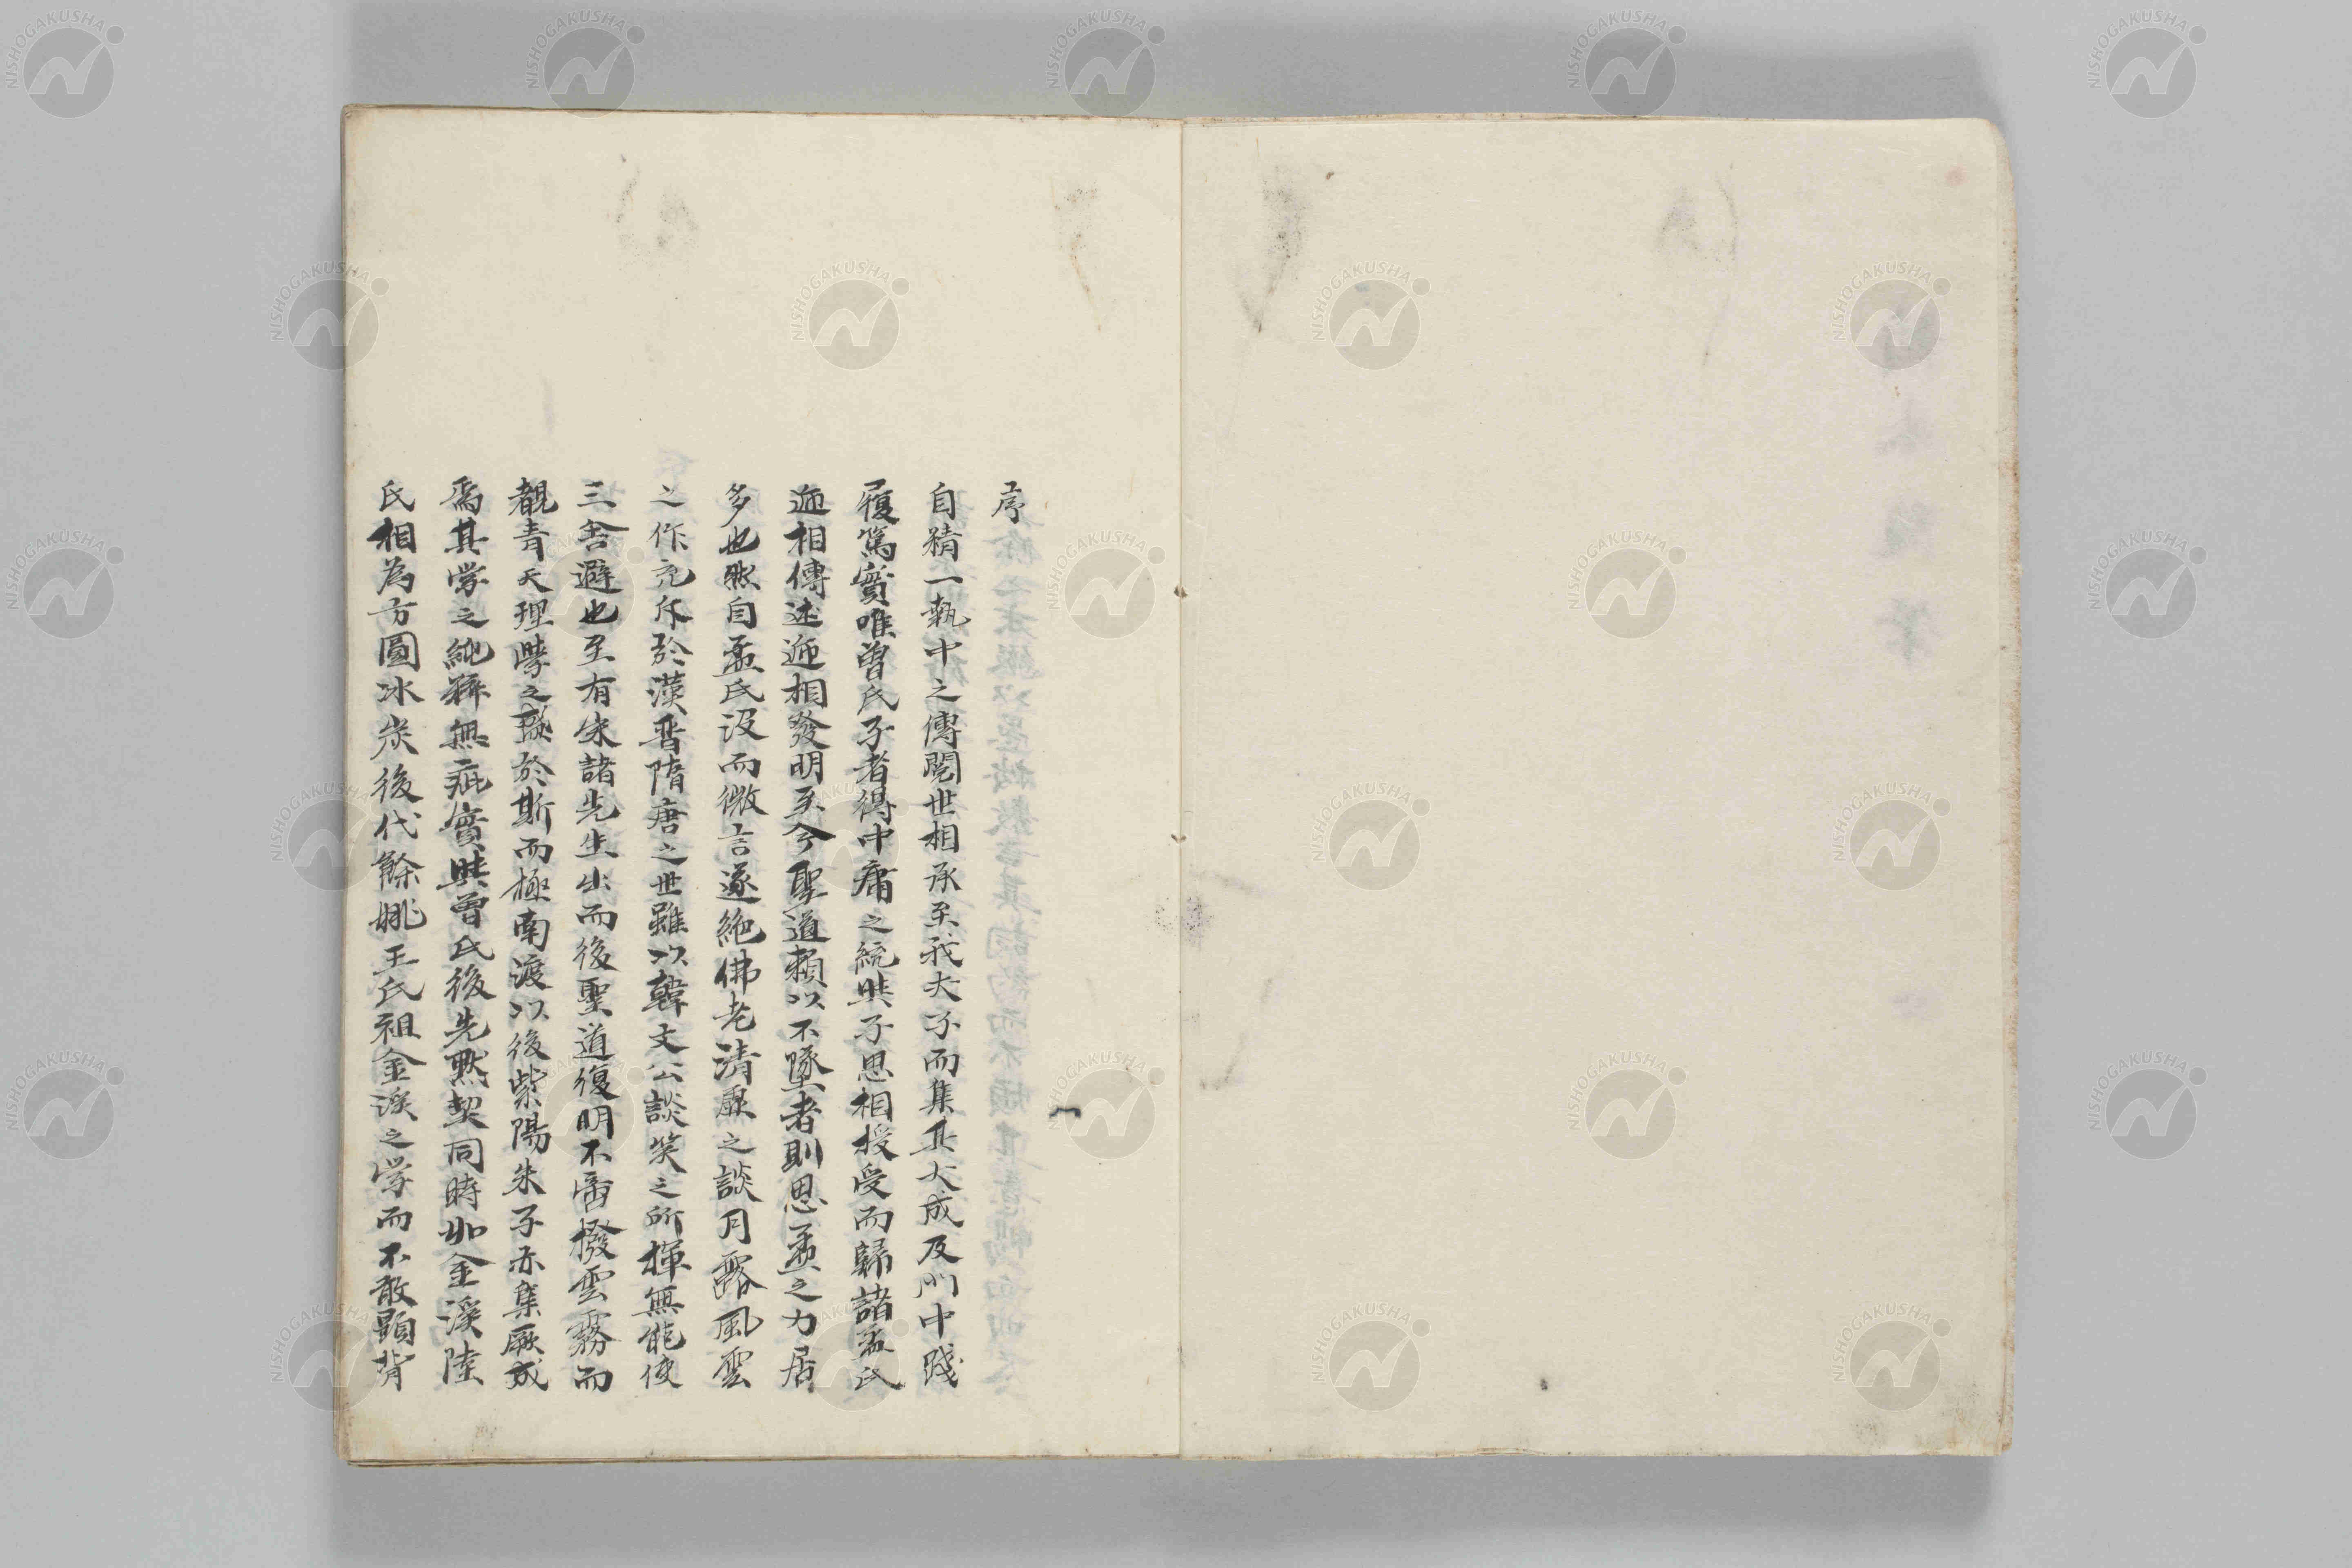 序
自精一執中之傳閱世相承至我夫子而集其大成及門中踐
履篤實唯曽氏子者得中庸之統與子思相授受而歸諸孟氏
遞相傳述遞相發明至今聖道賴以不墜者則思孟之力居
多也然自孟氏沒而微言遂絶佛老清虚之談月露風雲
之作充斥於漢晋隋唐之世雖以韓文公談笑之所揮無能使
三舎避也至有宋諸先生出而後聖道復明不啻撥雲霧而
覩青天理學之於斯而極南渡以後紫陽朱子亦集厥成
焉其学之純粹無疵實與曽氏後先黙契同時如金溪陸
氏相為方圓冰炭後代餘姚王氏祖金溪之学而不敢顕背
NISHOGAKUSHA